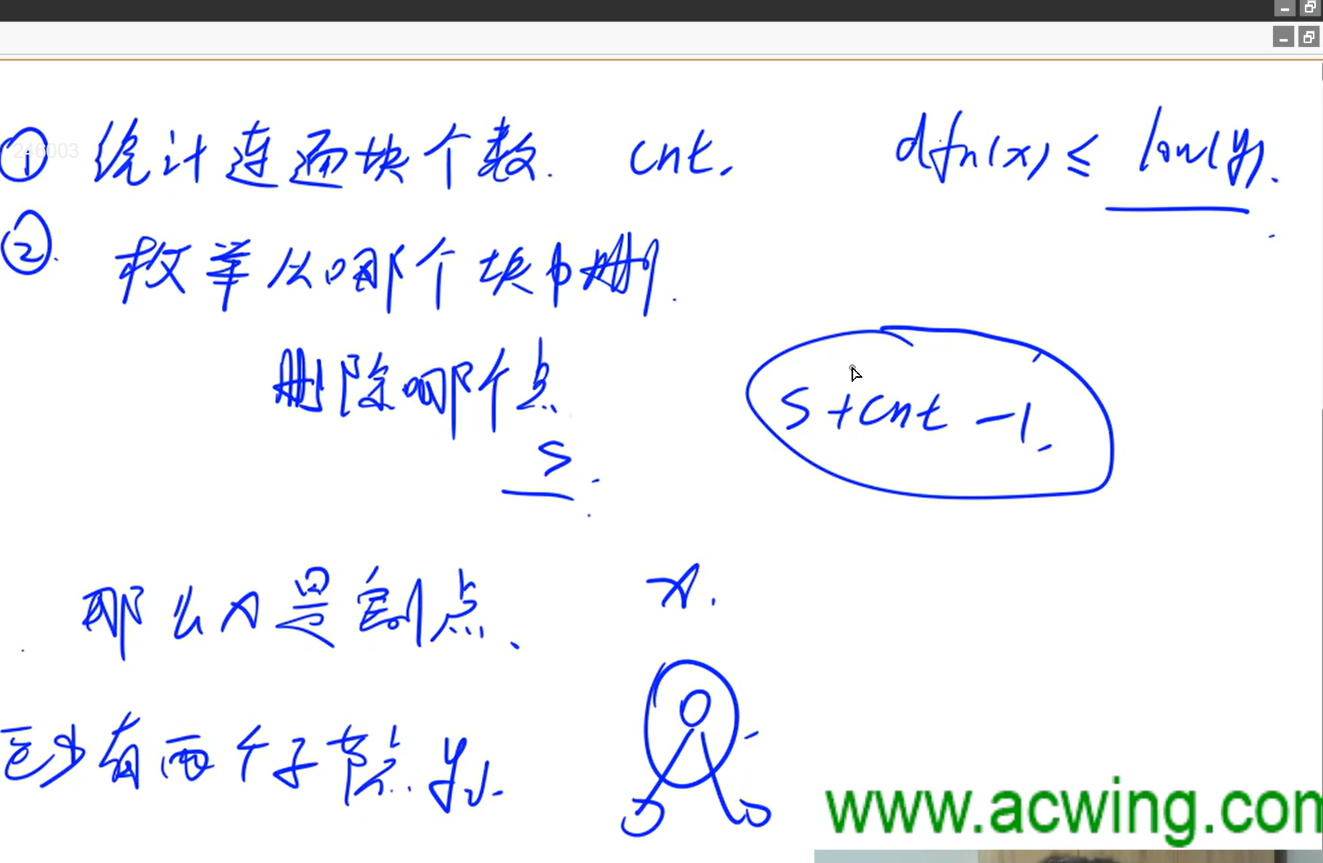 ① 统计连通块个数. cnt.
dfn(x) ≤ low(y).
246003
② 枚举从哪个块中删.
删除哪个点
s
s + cnt - 1.
那么x是割点、
x.
至少有两个子节点.
www.acwing.com